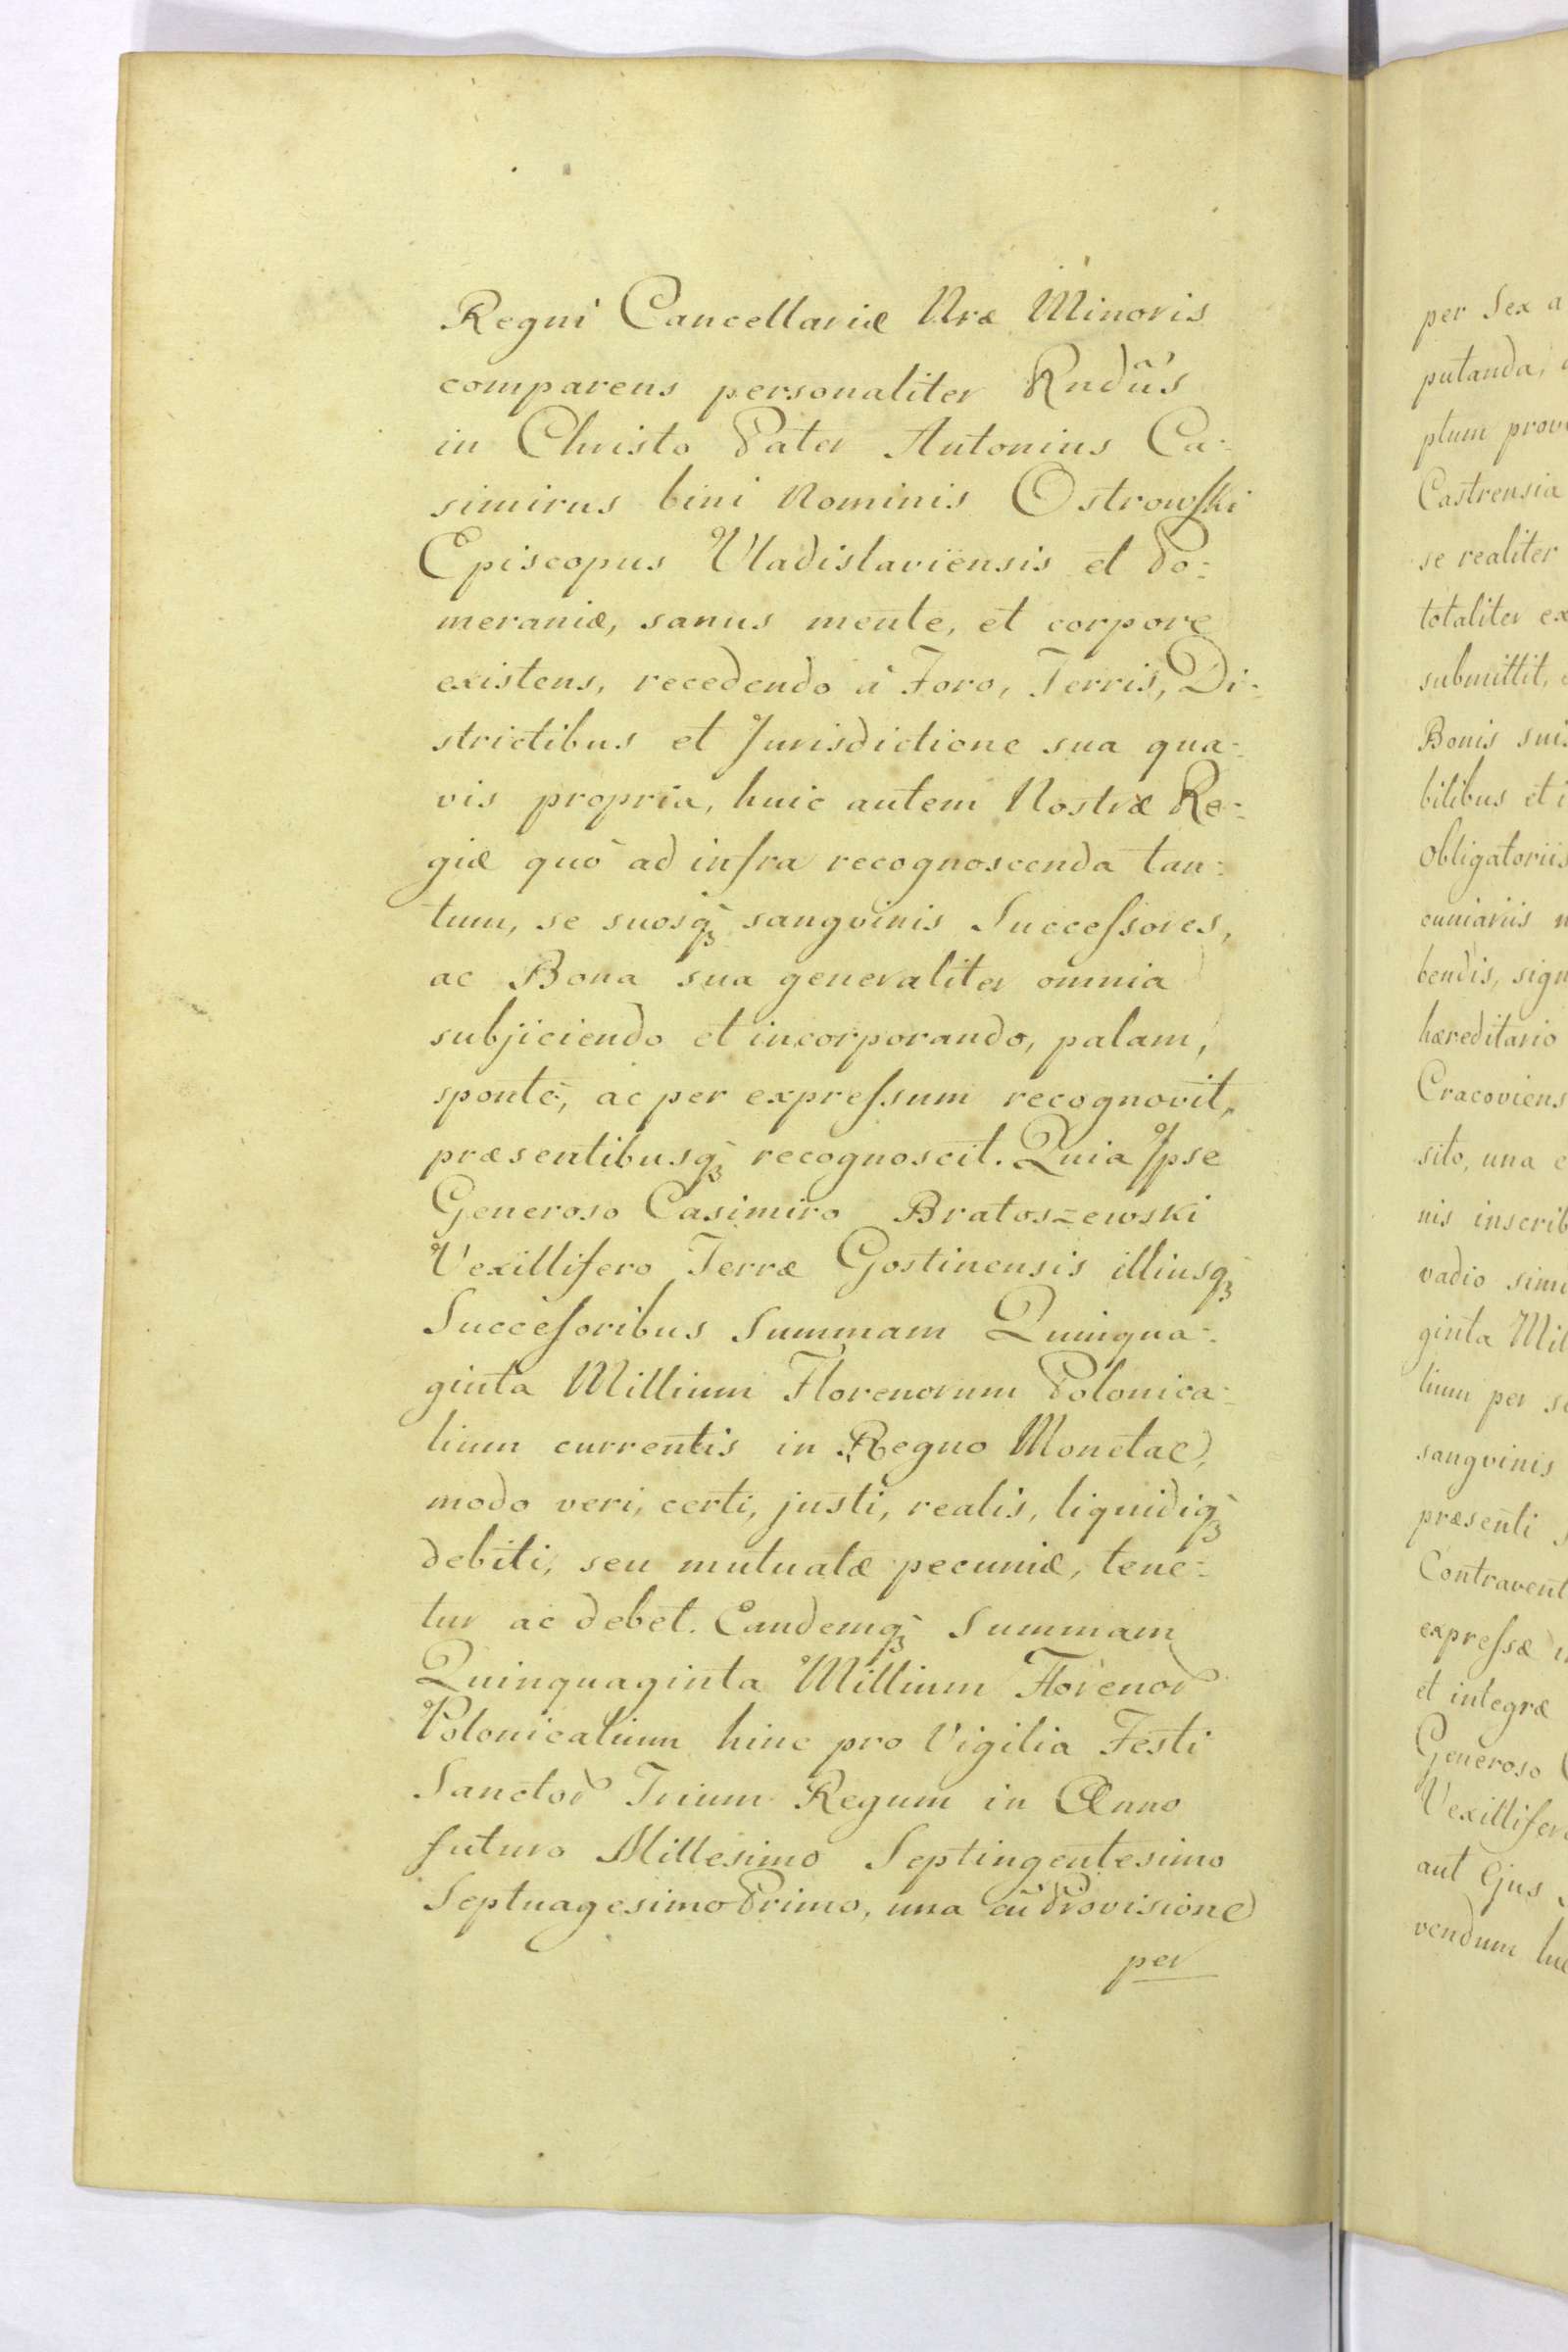 Regni Cancellariæ Nræ Minoris
comparens personaliter Rndũs
in Christo Pater Antonius Ca-
simirus bini Nominis Ostrowski
Episcopus Vladislaviensis et Po-
meraniæ, sanus mente, et corpore
existens, recedendo à Foro, Terris, Di-
strictibus et Jurisdictione sua qua-
vis propria, huic autem Nostræ Re-
giæ quò ad infra recognoscenda tan-
tum, se suosq̃ sangvinis Successores,
ac Bona sua generaliter omnia
subjiciendo et incorporando, palam,
sponte, ac per expressum recognovit,
præsentibusq̃ recognoscit. Quia Ipse
Generoso Casimiro Bratoszewski
Vexillifero Terræ Gostinensis illiusq̃
Successoribus Summam Quinqua-
ginta Millium Florenorum Polonica-
lium currentis in Regno Monetae,
modo veri, certi, justi, realis, liquidiq̃
debiti, seu mutuatæ pecuniæ, tene-
tur ac debet. Eandemq̃ Summam
Quinquaginta Millium Florenor
Polonicalium hinc pro Vigilia Festi
Sanctor Trium Regum in Anno
futuro Millesimo Septingentesimo
Septuagesimo Primo, una cũ Provisione
per
per Sex a
putanda,
plum prov
Castrensia
se realiter
totaliter ex
submittit,
Bonis suis
bilibus et i
obligatoriis
cuniariis
bendis, sign
hæreditario
Cracoviens
sito, una c
nis inscrib
vadio simi
ginta Mil
lium per s
sangvinis
præsenti
Contravent
expressæ
et integræ
Generoso
Vexillifer
aut Ejus
vendum